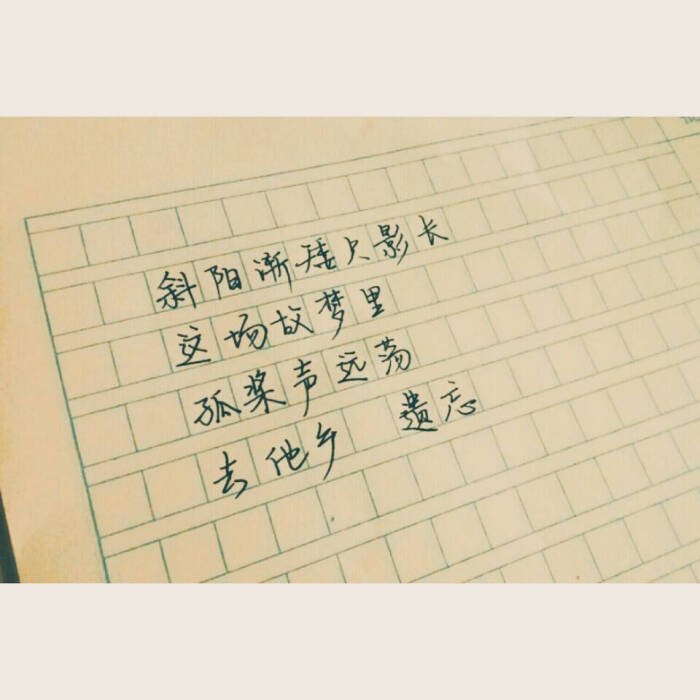 斜阳渐矮只影长
这场故梦里
孤桨声远荡
去他乡 遗忘